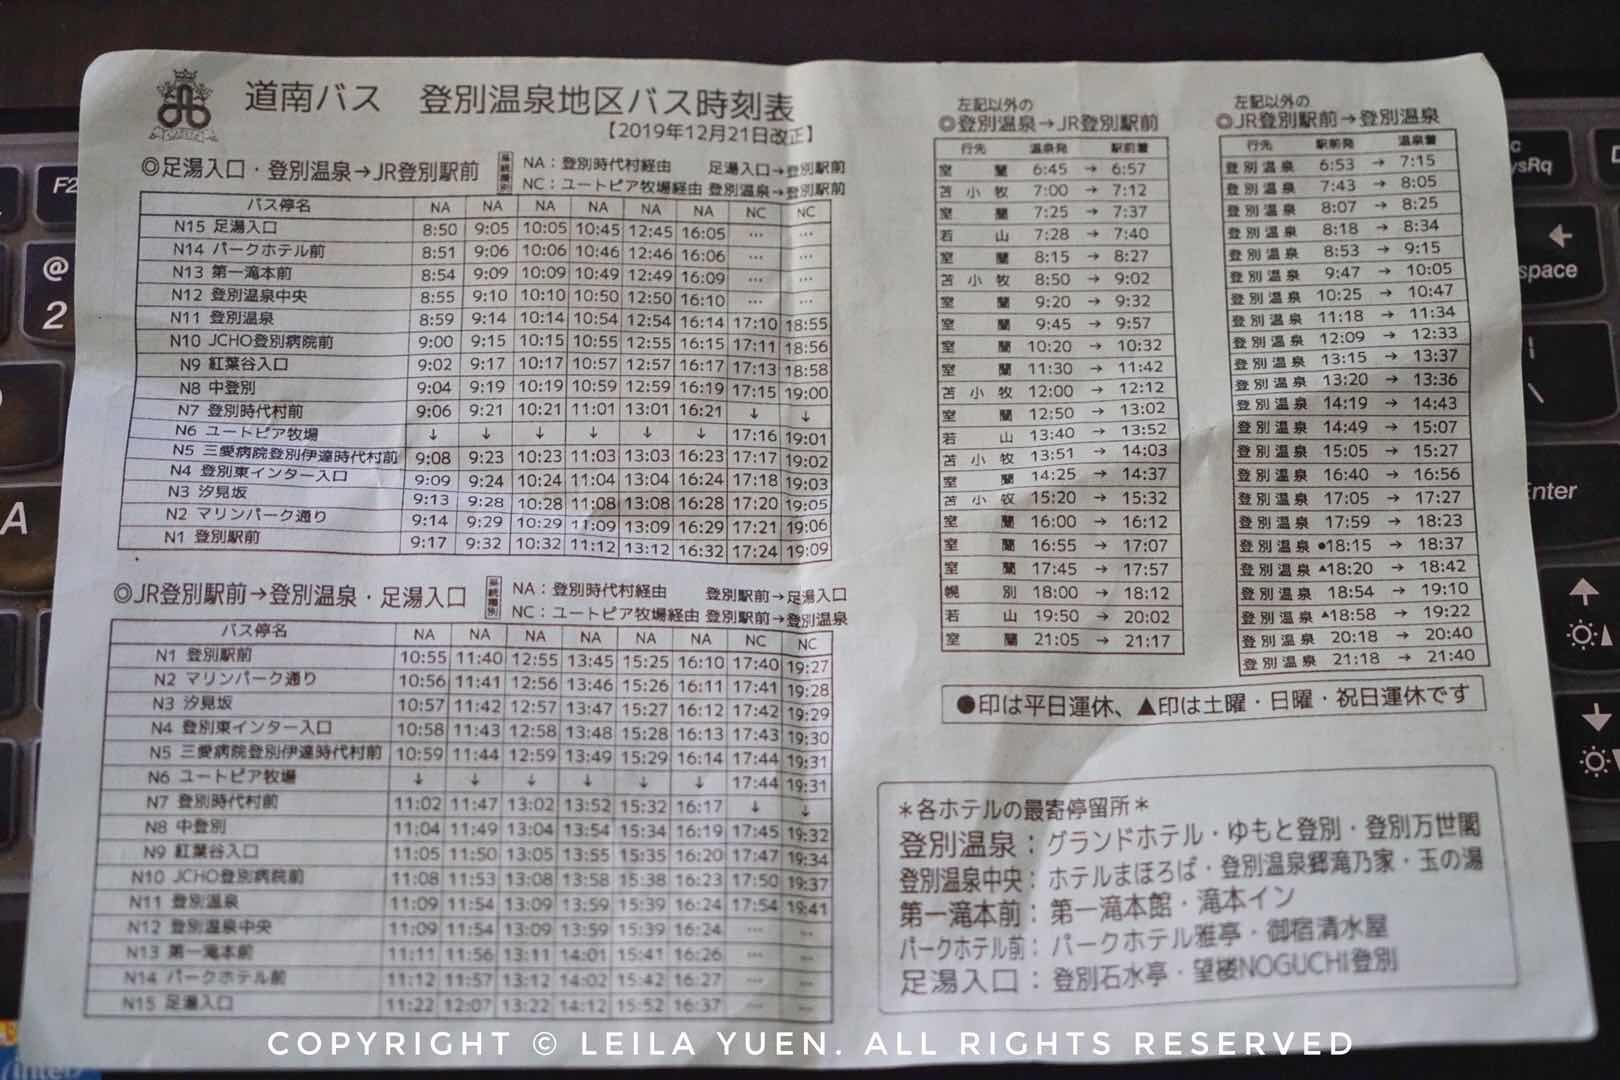 道南バス 登別温泉地区バス時刻表
【2019年12月21日改正】
◎足湯入口・登別温泉→JR登別駅前
NA：登別時代村経由 足湯入口→登別駅前
NC：ユートピア牧場経由 登別温泉→登別駅前
バス停名 NA NA NA NA NA NA NC NC
N15 足湯入口 8:50 9:05 10:05 10:45 12:45 16:05 … …
N14 パークホテル前 8:51 9:06 10:06 10:46 12:46 16:06 … …
N13 第一滝本前 8:54 9:09 10:09 10:49 12:49 16:09 … …
N12 登別温泉中央 8:55 9:10 10:10 10:50 12:50 16:10 … …
N11 登別温泉 8:59 9:14 10:14 10:54 12:54 16:14 17:10 18:55
N10 JCHO登別病院前 9:00 9:15 10:15 10:55 12:55 16:15 17:11 18:56
N9 紅葉谷入口 9:02 9:17 10:17 10:57 12:57 16:17 17:13 18:58
N8 中登別 9:04 9:19 10:19 10:59 12:59 16:19 17:15 19:00
N7 登別時代村前 9:06 9:21 10:21 11:01 13:01 16:21 ↓ ↓
N6 ユートピア牧場 ↓ ↓ ↓ ↓ ↓ ↓ 17:16 19:01
N5 三愛病院登別伊達時代村前 9:08 9:23 10:23 11:03 13:03 16:23 17:17 19:02
N4 登別東インター入口 9:09 9:24 10:24 11:04 13:04 16:24 17:18 19:03
N3 汐見坂 9:13 9:28 10:28 11:08 13:08 16:28 17:20 19:05
N2 マリンパーク通り 9:14 9:29 10:29 11:09 13:09 16:29 17:21 19:06
N1 登別駅前 9:17 9:32 10:32 11:12 13:12 16:32 17:24 19:09
◎JR登別駅前→登別温泉・足湯入口
NA：登別時代村経由 登別駅前→足湯入口
NC：ユートピア牧場経由 登別駅前→登別温泉
バス停名 NA NA NA NA NA NA NC NC
N1 登別駅前 10:55 11:40 12:55 13:45 15:25 16:10 17:40 19:27
N2 マリンパーク通り 10:56 11:41 12:56 13:46 15:26 16:11 17:41 19:28
N3 汐見坂 10:57 11:42 12:57 13:47 15:27 16:12 17:42 19:29
N4 登別東インター入口 10:58 11:43 12:58 13:48 15:28 16:13 17:43 19:30
N5 三愛病院登別伊達時代村前 10:59 11:44 12:59 13:49 15:29 16:14 17:44 19:31
N6 ユートピア牧場 ↓ ↓ ↓ ↓ ↓ ↓ 17:44 19:31
N7 登別時代村前 11:02 11:47 13:02 13:52 15:32 16:17 ↓ ↓
N8 中登別 11:04 11:49 13:04 13:54 15:34 16:19 17:45 19:32
N9 紅葉谷入口 11:05 11:50 13:05 13:55 15:35 16:20 17:47 19:34
N10 JCHO登別病院前 11:08 11:53 13:08 13:58 15:38 16:23 17:50 19:37
N11 登別温泉 11:09 11:54 13:09 13:59 15:39 16:24 17:54 19:41
N12 登別温泉中央 11:09 11:54 13:09 13:59 15:39 16:24 … …
N13 第一滝本前 11:11 11:56 13:11 14:01 15:41 16:26 … …
N14 パークホテル前 11:12 11:57 13:12 14:02 15:42 16:27 … …
N15 足湯入口 11:22 12:07 13:22 14:12 15:52 16:37 … …
左記以外の
◎登別温泉→JR登別駅前
行先 温泉発 駅前着
室蘭 6:45 → 6:57
苫小牧 7:00 → 7:12
室蘭 7:25 → 7:37
若山 7:28 → 7:40
室蘭 8:15 → 8:27
苫小牧 8:50 → 9:02
室蘭 9:20 → 9:32
室蘭 9:45 → 9:57
室蘭 10:20 → 10:32
室蘭 11:30 → 11:42
苫小牧 12:00 → 12:12
室蘭 12:50 → 13:02
若山 13:40 → 13:52
苫小牧 13:51 → 14:03
室蘭 14:25 → 14:37
苫小牧 15:20 → 15:32
室蘭 16:00 → 16:12
室蘭 16:55 → 17:07
室蘭 17:45 → 17:57
幌別 18:00 → 18:12
若山 19:50 → 20:02
室蘭 21:05 → 21:17
左記以外の
◎JR登別駅前→登別温泉
行先 駅前発 温泉着
登別温泉 6:53 → 7:15
登別温泉 7:43 → 8:05
登別温泉 8:07 → 8:25
登別温泉 8:18 → 8:34
登別温泉 8:53 → 9:15
登別温泉 9:47 → 10:05
登別温泉 10:25 → 10:47
登別温泉 11:18 → 11:34
登別温泉 12:09 → 12:33
登別温泉 13:15 → 13:37
登別温泉 13:20 → 13:36
登別温泉 14:19 → 14:43
登別温泉 14:49 → 15:07
登別温泉 15:05 → 15:27
登別温泉 16:40 → 16:56
登別温泉 17:05 → 17:27
登別温泉 17:59 → 18:23
登別温泉 ●18:15 → 18:37
登別温泉 ▲18:20 → 18:42
登別温泉 18:54 → 19:10
登別温泉 ▲18:58 → 19:22
登別温泉 20:18 → 20:40
登別温泉 21:18 → 21:40
●印は平日運休、▲印は土曜・日曜・祝日運休です
＊各ホテルの最寄停留所＊
登別温泉：グランドホテル・ゆもと登別・登別万世閣
登別温泉中央：ホテルまほろば・登別温泉郷滝乃家・玉の湯
第一滝本前：第一滝本館・滝本イン
パークホテル前：パークホテル雅亭・御宿清水屋
足湯入口：登別石水亭・望楼NOGUCHI登別
F2
@
2
A
SysRq
space
Enter
COPYRIGHT © LEILA YUEN. ALL RIGHTS RESERVED